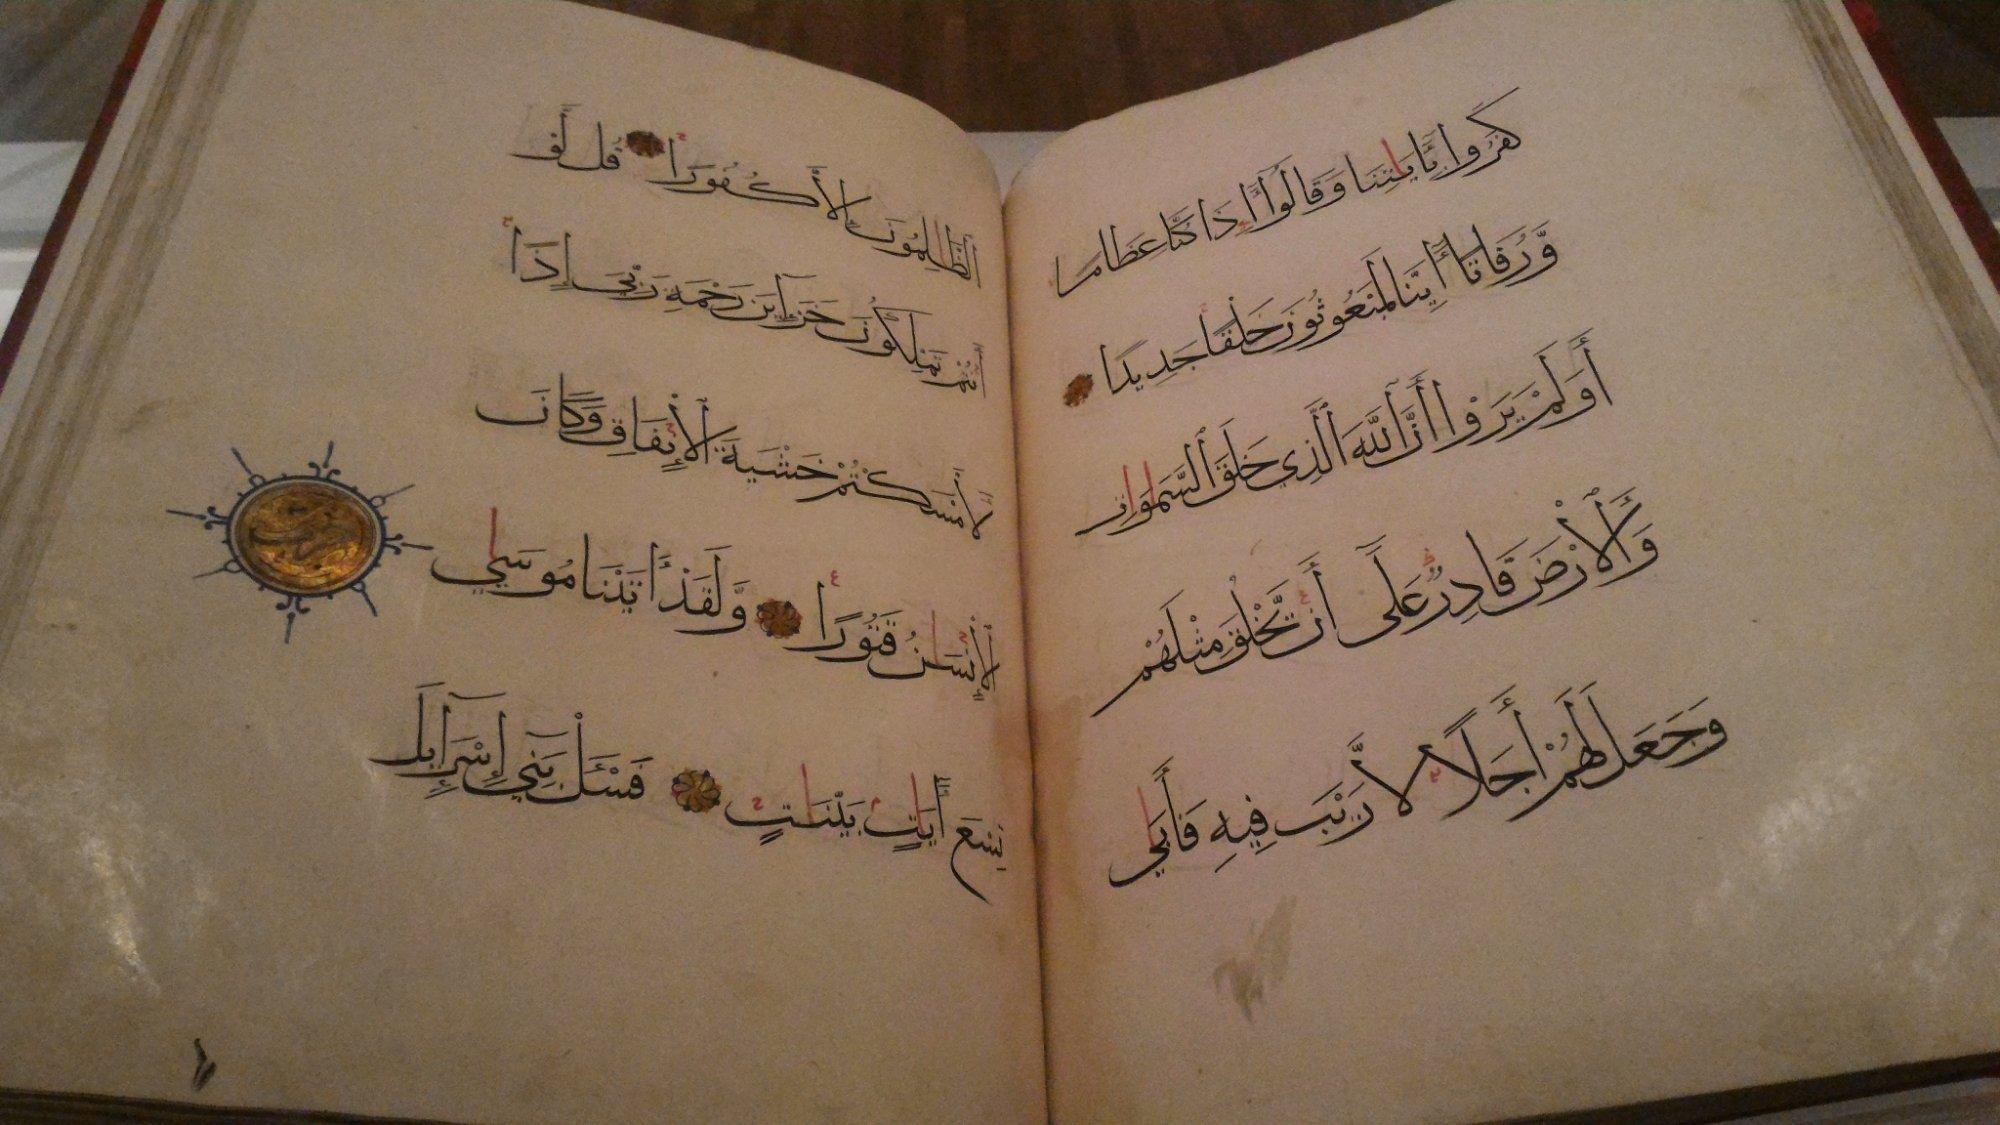 كَفَرُوا بِـَٔايَـٰتِنَا وَقَالُوٓا أَءِذَا كُنَّا عِظَـٰمًا
وَّرُفَاتًا أَءِنَّا لَمَبْعُوثُونَ خَلْقًا جَدِيدًا
أَوَلَمْ يَرَوْا أَنَّ ٱللَّهَ ٱلَّذِي خَلَقَ ٱلسَّمَـٰوَاتِ
وَٱلْأَرْضَ قَادِرٌ عَلَىٰٓ أَن يَّخْلُقَ مِثْلَهُمْ
وَجَعَلَ لَهُمْ أَجَلًا لَّا رَيْبَ فِيهِ فَأَبَى
ٱلظَّـٰلِمُونَ إِلَّا كُفُورًا قُل لَّوْ
أَنتُمْ تَمْلِكُونَ خَزَآئِنَ رَحْمَةِ رَبِّي إِذًا
لَّأَمْسَكْتُمْ خَشْيَةَ ٱلْإِنفَاقِ وَكَانَ
ٱلْإِنسَـٰنُ قَتُورًا وَلَقَدْ ءَاتَيْنَا مُوسَى
تِسْعَ ءَايَـٰتٍ بَيِّنَـٰتٍ فَسْـَٔلْ بَنِيٓ إِسْرَآئِيلَ